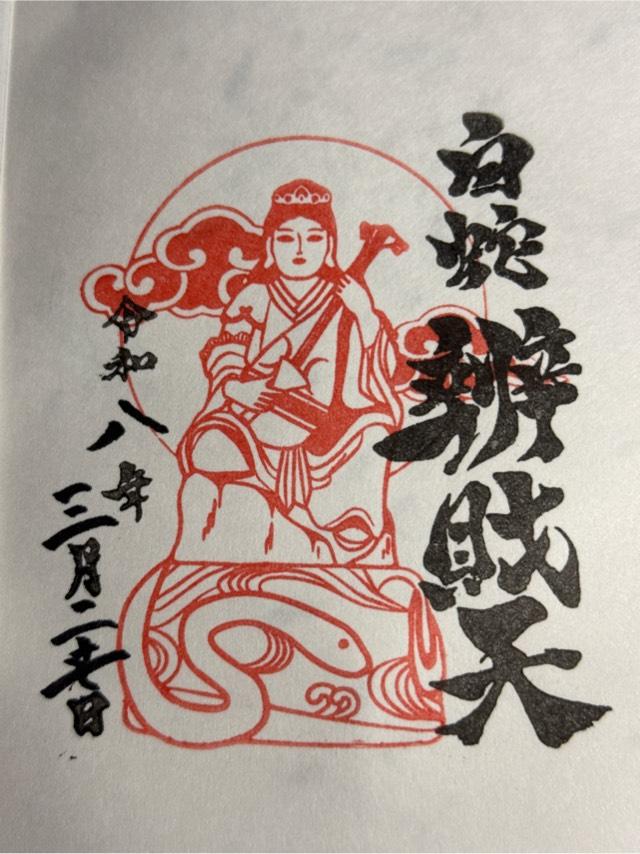 白蛇
辨財天
令和八年
三月二十七日